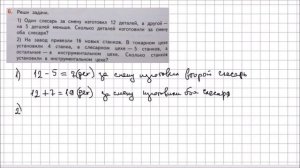 6. Реши задачи.
1) Один слесарь за смену изготовил 12 деталей, а другой —
на 5 деталей меньше. Сколько деталей изготовили за смену
оба слесаря?
2) На завод привезли 18 новых станков. В токарном цехе
установили 4 станка, в слесарном цехе — 5 станков, а
остальные — в инструментальном цехе. Сколько станков
установили в инструментальном цехе?
1) 12 - 5 = 7 (дет) за смену изготовил второй слесарь
12 + 7 = 19 (дет) за смену изготовили оба слесаря
2)